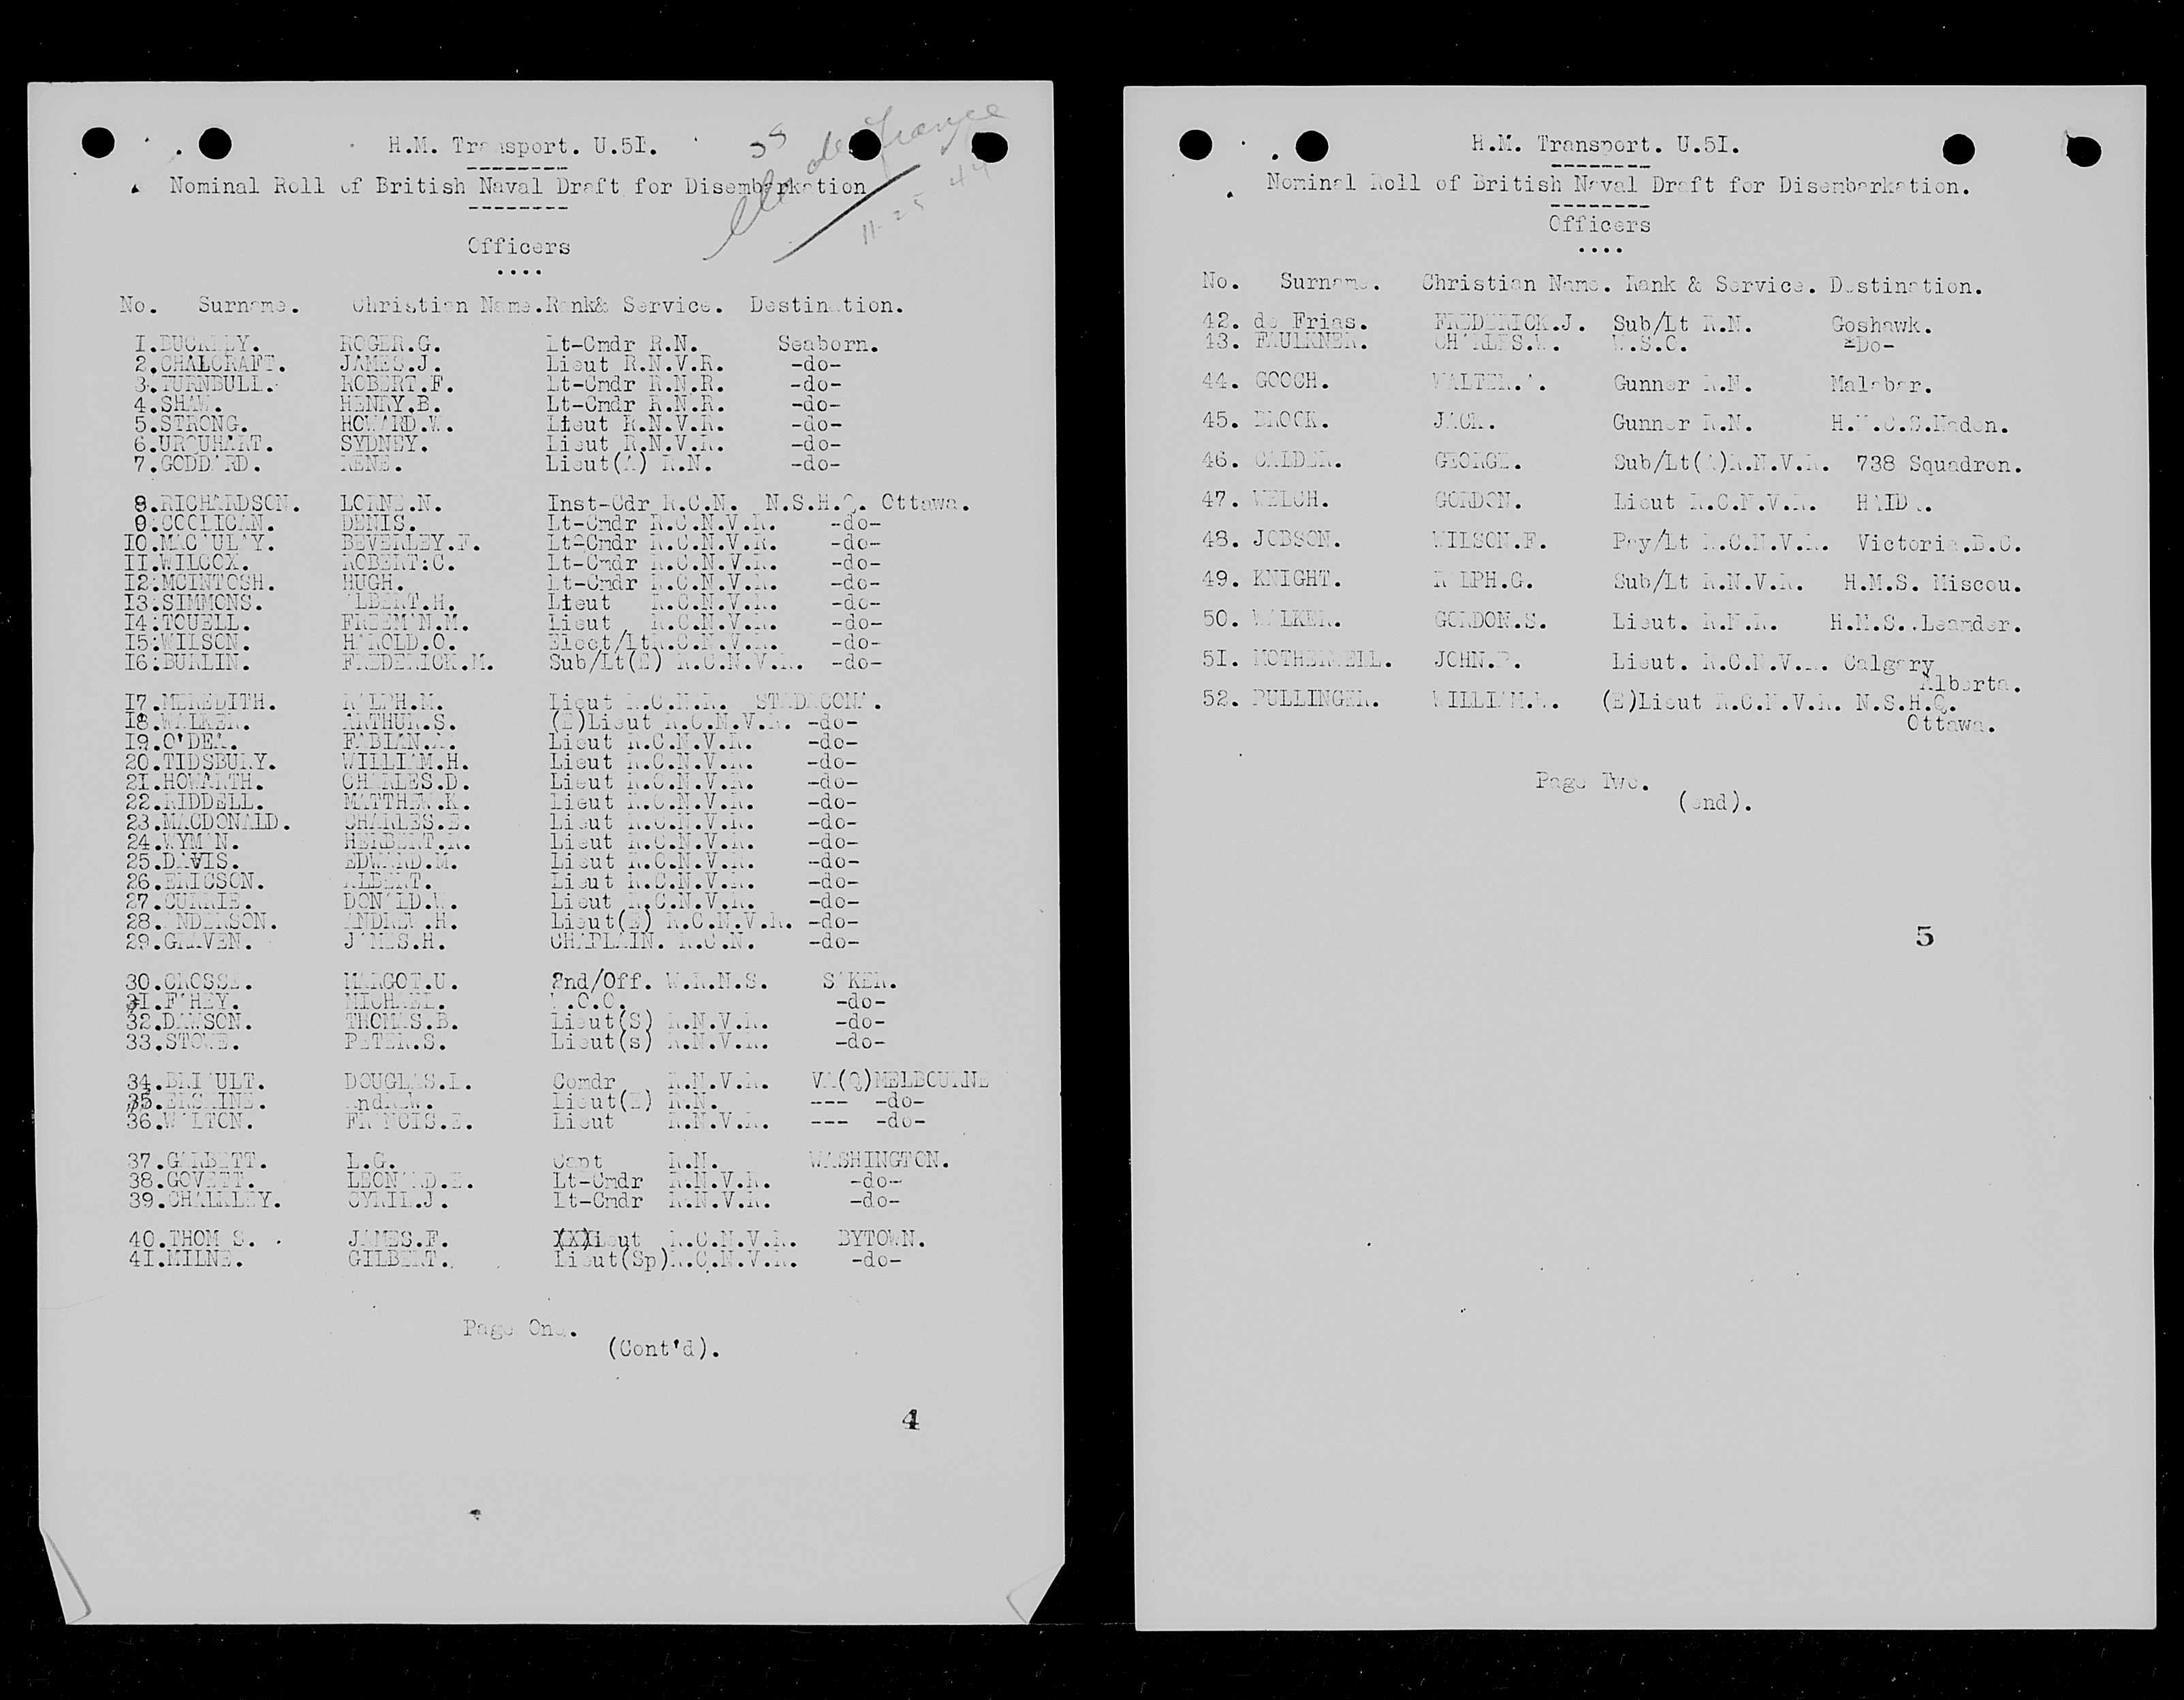 H.M. Transport. U.5I.
SS
Ile de France
11-25 44
Nominal Roll of British Naval Draft for Disembarkation
Officers
....
No. Surname. Christian Name. Rank& Service. Destination.
I. BUCKLEY. ROGER.G. Lt-Cmdr R.N. Seaborn.
2. CHALCRAFT. JAMES.J. Lieut R.N.V.R. -do-
3. TURNBULL. ROBERT.F. Lt-Cmdr R.N.R. -do-
4. SHAW. HENRY.B. Lt-Cmdr R.N.R. -do-
5. STRONG. HOWARD.W. Lieut R.N.V.R. -do-
6. URQUHART. SYDNEY. Lieut R.N.V.R. -do-
7. GODDARD. RENE. Lieut(A) R.N. -do-
8. RICHARDSON. LORNE.N. Inst-Cdr R.C.N. N.S.H.Q. Ottawa.
9. COOLICAN. DENIS. Lt-Cmdr R.C.N.V.R. -do-
IO. MACAULAY. BEVERLEY.F. Lt-Cmdr R.C.N.V.R. -do-
II. WILCOX. ROBERT:C. Lt-Cmdr R.C.N.V.R. -do-
I2: MCINTOSH. HUGH. Lt-Cmdr R.C.N.V.R. -do-
I3: SIMMONS. ALBERT.H. Lieut R.C.N.V.R. -do-
I4: TOUELL. FREEMAN.M. Lieut R.C.N.V.R. -do-
I5: WILSON. HAROLD.O. Elect/LtR.C.N.V.R. -do-
I6: BURLIN. FREDERICK.M. Sub/Lt(E) R.C.N.V.R. -do-
I7. MEREDITH. RALPH.M. Lieut R.C.N.R. STADACONA.
I8. WALKER. ARTHUR.S. (E)Lieut R.C.N.V.R. -do-
I9. O'DEA. FABIAN.A. Lieut R.C.N.V.R. -do-
20. TIDSBURY. WILLIAM.H. Lieut R.C.N.V.R. -do-
2I. HOWARTH. CHARLES.D. Lieut R.C.N.V.R. -do-
22. RIDDELL. MATTHEW.K. Lieut R.C.N.V.R. -do-
23. MACDONALD. CHARLES.E. Lieut R.C.N.V.R. -do-
24. WYMAN. HERBERT.R. Lieut R.C.N.V.R. -do-
25. DAVIS. EDWARD.M. Lieut R.C.N.V.R. -do-
26. ERICSON. ALBERT. Lieut R.C.N.V.R. -do-
27. CURRIE. DONALD.W. Lieut R.C.N.V.R. -do-
28. ANDERSON. ANDREW.H. Lieut(E) R.C.N.V.R. -do-
29. GRAVEN. JAMES.H. CHAPLAIN. R.C.N. -do-
30. CROSSE. MARGOT.U. 2nd/Off. W.R.N.S. SAKER.
3I. FAHEY. MICHAEL. .O.O. -do-
32. DAWSON. THOMAS.B. Lieut(S) R.N.V.R. -do-
33. STOWE. PETER.S. Lieut(s) R.N.V.R. -do-
34. BRIAULT. DOUGLAS.L. Comdr R.N.V.R. VA(Q)MELBOURNE
35. ERSKINE. AndREW. Lieut(E) R.N. --- -do-
36. WALTON. FRANCIS.E. Lieut R.N.V.R. --- -do-
37. GARBETT. L.G. Capt R.N. WASHINGTON.
38. GOVETT. LEONARD.E. Lt-Cmdr R.N.V.R. -do-
39. CHALKLEY. CYRIL.J. Lt-Cmdr R.N.V.R. -do-
40. THOMAS. JAMES.F. Lieut R.C.N.V.R. BYTOWN.
4I. MILNE. GILBERT. Lieut(Sp)R.C.N.V.R. -do-
Page One.
(Cont'd).
4
H.M. Transport. U.5I.
Nominal Roll of British Naval Draft for Disembarkation.
Officers
....
No. Surname. Christian Name. Rank & Service. Destination.
42. de Frias. FREDERICK.J. Sub/Lt R.N. Goshawk.
43. FAULKNER. CHARLES.W. W.S.O. -Do-
44. GOOCH. WALTER.A. Gunner R.N. Malabar.
45. BLOCK. JACK. Gunner R.N. H.M.C.S.Naden.
46. CALDER. GEORGE. Sub/Lt(A)R.N.V.R. 738 Squadron.
47. WELCH. GORDON. Lieut R.C.N.V.R. HAIDA.
48. JOBSON. WILSON.F. Pay/Lt R.C.N.V.R. Victoria.B.C.
49. KNIGHT. RALPH.G. Sub/Lt R.N.V.R. H.M.S. Miscou.
50. WALKER. GORDON.S. Lieut. R.N.R. H.M.S..Leander.
5I. MOTHERWELL. JOHN. Lieut. R.C.N.V.R. Calgary
Alberta.
52. PULLINGER. WILLIAM.W. (E)Lieut R.C.N.V.R. N.S.H.Q.
Ottawa.
Page Two.
(end).
5